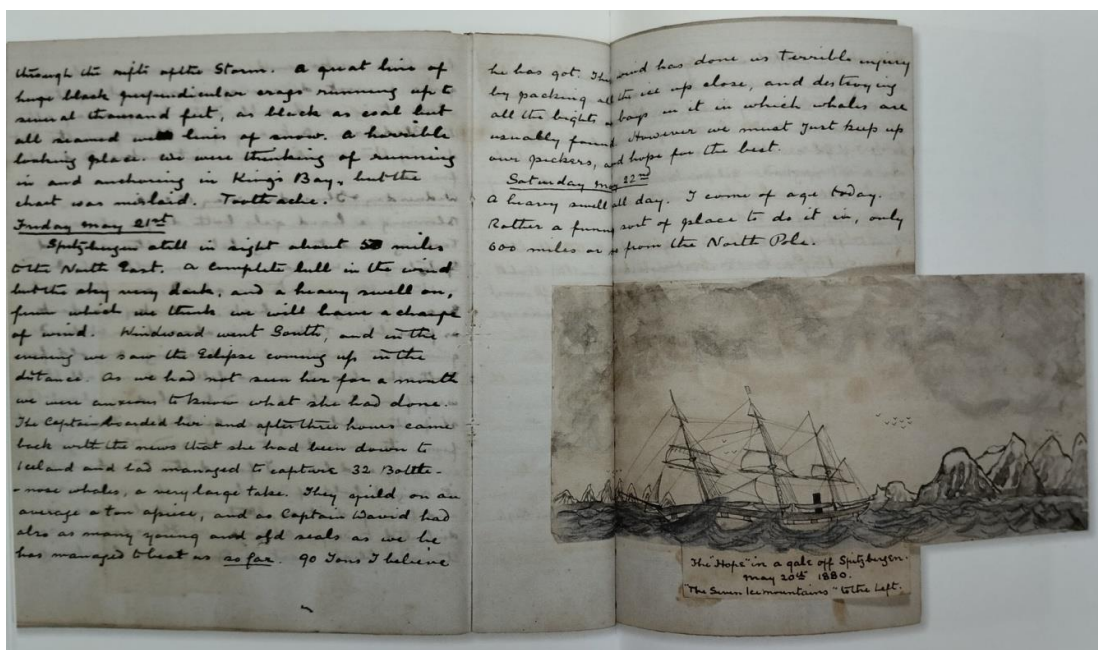 through the rifts of the Storm. A great line of
huge black perpendicular crags running up to
several thousand feet, as black as coal but
all seamed with lines of snow. A horrible
looking place. We were thinking of running
in and anchoring in King's Bay, but the
chart was mislaid. Toothache.
Friday May 21st
Spitzbergen still in sight about 50 miles
to the North East. A complete lull in the wind
but the sky very dark, and a heavy swell on,
from which we think we will have a change
of wind. Windward went South, and in the
evening we saw the Eclipse coming up in the
distance. As we had not seen her for a month
we were anxious to know what she had done.
The Captain boarded her and after three hours came
back with the news that she had been down to
Iceland and had managed to capture 32 Bottle-
-nose whales, a very large take. They yield on an
average a ton apiece, and as Captain David had
also as many young and old seals as we he
has managed to beat us so far. 90 Tons I believe
he has got. The wind has done us terrible injury
by packing all the ice up close, and destroying
all the bights or bays in it in which whales are
usually found. However we must Just keep up
our peckers, and hope for the best.
Saturday May 22nd
A heavy swell all day. I come of age today.
Rather a funny sort of place to do it in, only
600 miles or so from the North Pole.
The "Hope" in a gale off Spitzbergen.
May 20th 1880.
"The Seven Ice mountains" to the Left.